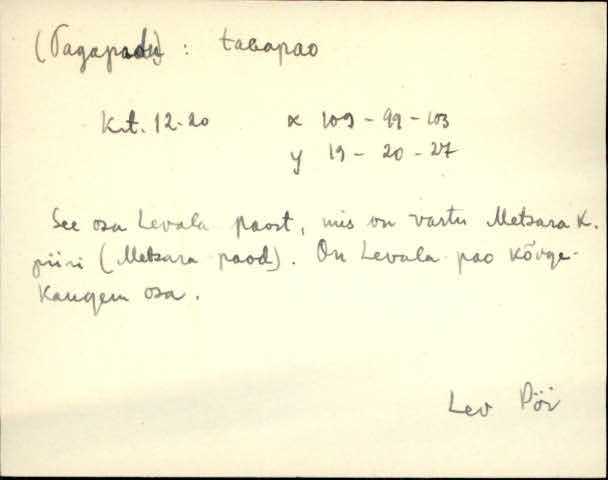 (Tagapadu) : tagapao
Krt. 12-20 x 109 - 99 - 103
y 19 - 20 - 27
See osa Levala paost, mis on vastu Metsara K.
piiri (Metsara paod). On Levala pao kõvge-
kaugem osa.
Lev Pöi